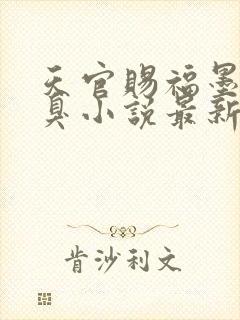 天官赐福墨
臭小说最新
肯沙利文